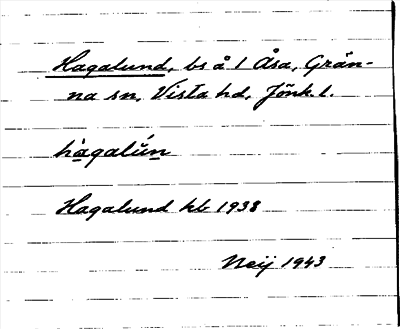 Hagalund, bs å 1 Åsa, Grän-
na sn, Vista hd, Jönk. l.
hàgalún
Hagalund kb 1938
Neij 1943